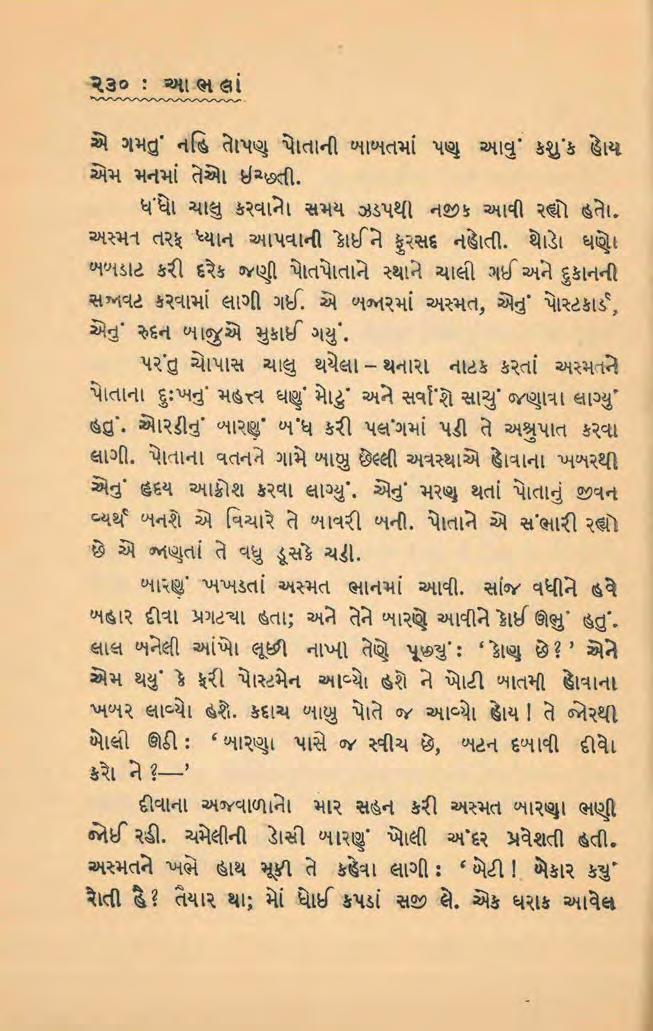 ૨૩૦ : આભલાં
એ ગમતું નહિ તોપણ પોતાની બાબતમાં પણ આવું કશુંક હોય
એમ મનમાં તેઓ ઇચ્છતી.
ધંધો ચાલુ કરવાનો સમય ઝડપથી નજીક આવી રહ્યો હતો.
અસ્મત તરફ ધ્યાન આપવાની કોઈને ફુરસદ નહોતી. થોડો ઘણો
બબડાટ કરી દરેક જણી પોતપોતાને સ્થાને ચાલી ગઈ અને દુકાનની
સજાવટ કરવામાં લાગી ગઈ. એ બજારમાં અસ્મત, એનું પોસ્ટકાર્ડ,
એનું રુદન બાજુએ મુકાઈ ગયું.
પરંતુ ચોપાસ ચાલુ થયેલા – થનારા નાટક કરતાં અસ્મતને
પોતાના દુઃખનું મહત્ત્વ ઘણું મોટું અને સર્વાંશે સાચું જણાવા લાગ્યું
હતું. ઓરડીનું બારણું બંધ કરી પલંગમાં પડી તે અશ્રુપાત કરવા
લાગી. પોતાના વતનને ગામે બાબુ છેલ્લી અવસ્થાએ હોવાના ખબરથી
એનું હૃદય આક્રોશ કરવા લાગ્યું. એનું મરણ થતાં પોતાનું જીવન
વ્યર્થ બનશે એ વિચારે તે બાવરી બની. પોતાને એ સંભારી રહ્યો
છે એ જાણતાં તે વધુ ડૂસકે ચડી.
બારણું ખખડતાં અસ્મત ભાનમાં આવી. સાંજ વધીને હવે
બહાર દીવા પ્રગટ્યા હતા; અને તેને બારણે આવીને કોઈ ઊભું હતું.
લાલ બનેલી આંખો લૂછી નાખી તેણે પૂછ્યું : ‘કોણ છે?’ એને
એમ થયું કે ફરી પોસ્ટમેન આવ્યો હશે ને ખોટી બાતમી હોવાના
ખબર લાવ્યો હશે. કદાચ બાબુ પોતે જ આવ્યો હોય! તે જોરથી
બોલી ઊઠી : ‘બારણા પાસે જ સ્વીચ છે, બટન દબાવી દીવો
કરો ને ?—’
દીવાના અજવાળાનો માર સહન કરી અસ્મત બારણા ભણી
જોઈ રહી. ચમેલીની ડોસી બારણું ખોલી અંદર પ્રવેશતી હતી.
અસ્મતને ખભે હાથ મૂકી તે કહેવા લાગી : ‘બેટી! બેકાર ક્યું
રોતી હૈ? તૈયાર થા; મોં ધોઈ કપડાં સજી લે. એક ઘરાક આવેલ